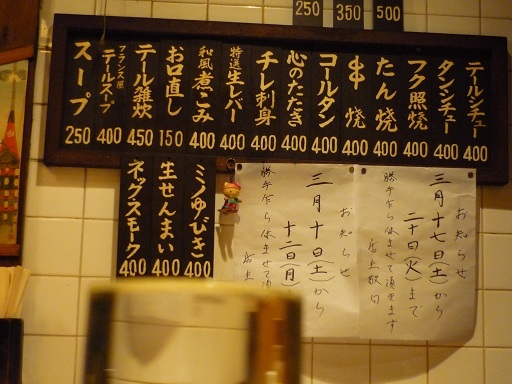 250
350
500
テールシチュー 400
タンシチュー 400
フク照焼 400
たん焼 400
串焼 400
コールタン 400
心のたたき 400
チレ刺身 400
特選生レバー 400
和風煮こみ 400
お口直し 150
テール雑炊 450
フランス風テールスープ 400
スープ 250
ミノゆびき 400
生せんまい 400
ネッグスモーク 400
お知らせ
三月十七日(土)から
二十日(火)まで
勝手乍ら休ませて頂きます
店主敬白
お知らせ
三月十日(土)から
十二日(月)
勝手乍ら休ませて頂
店主